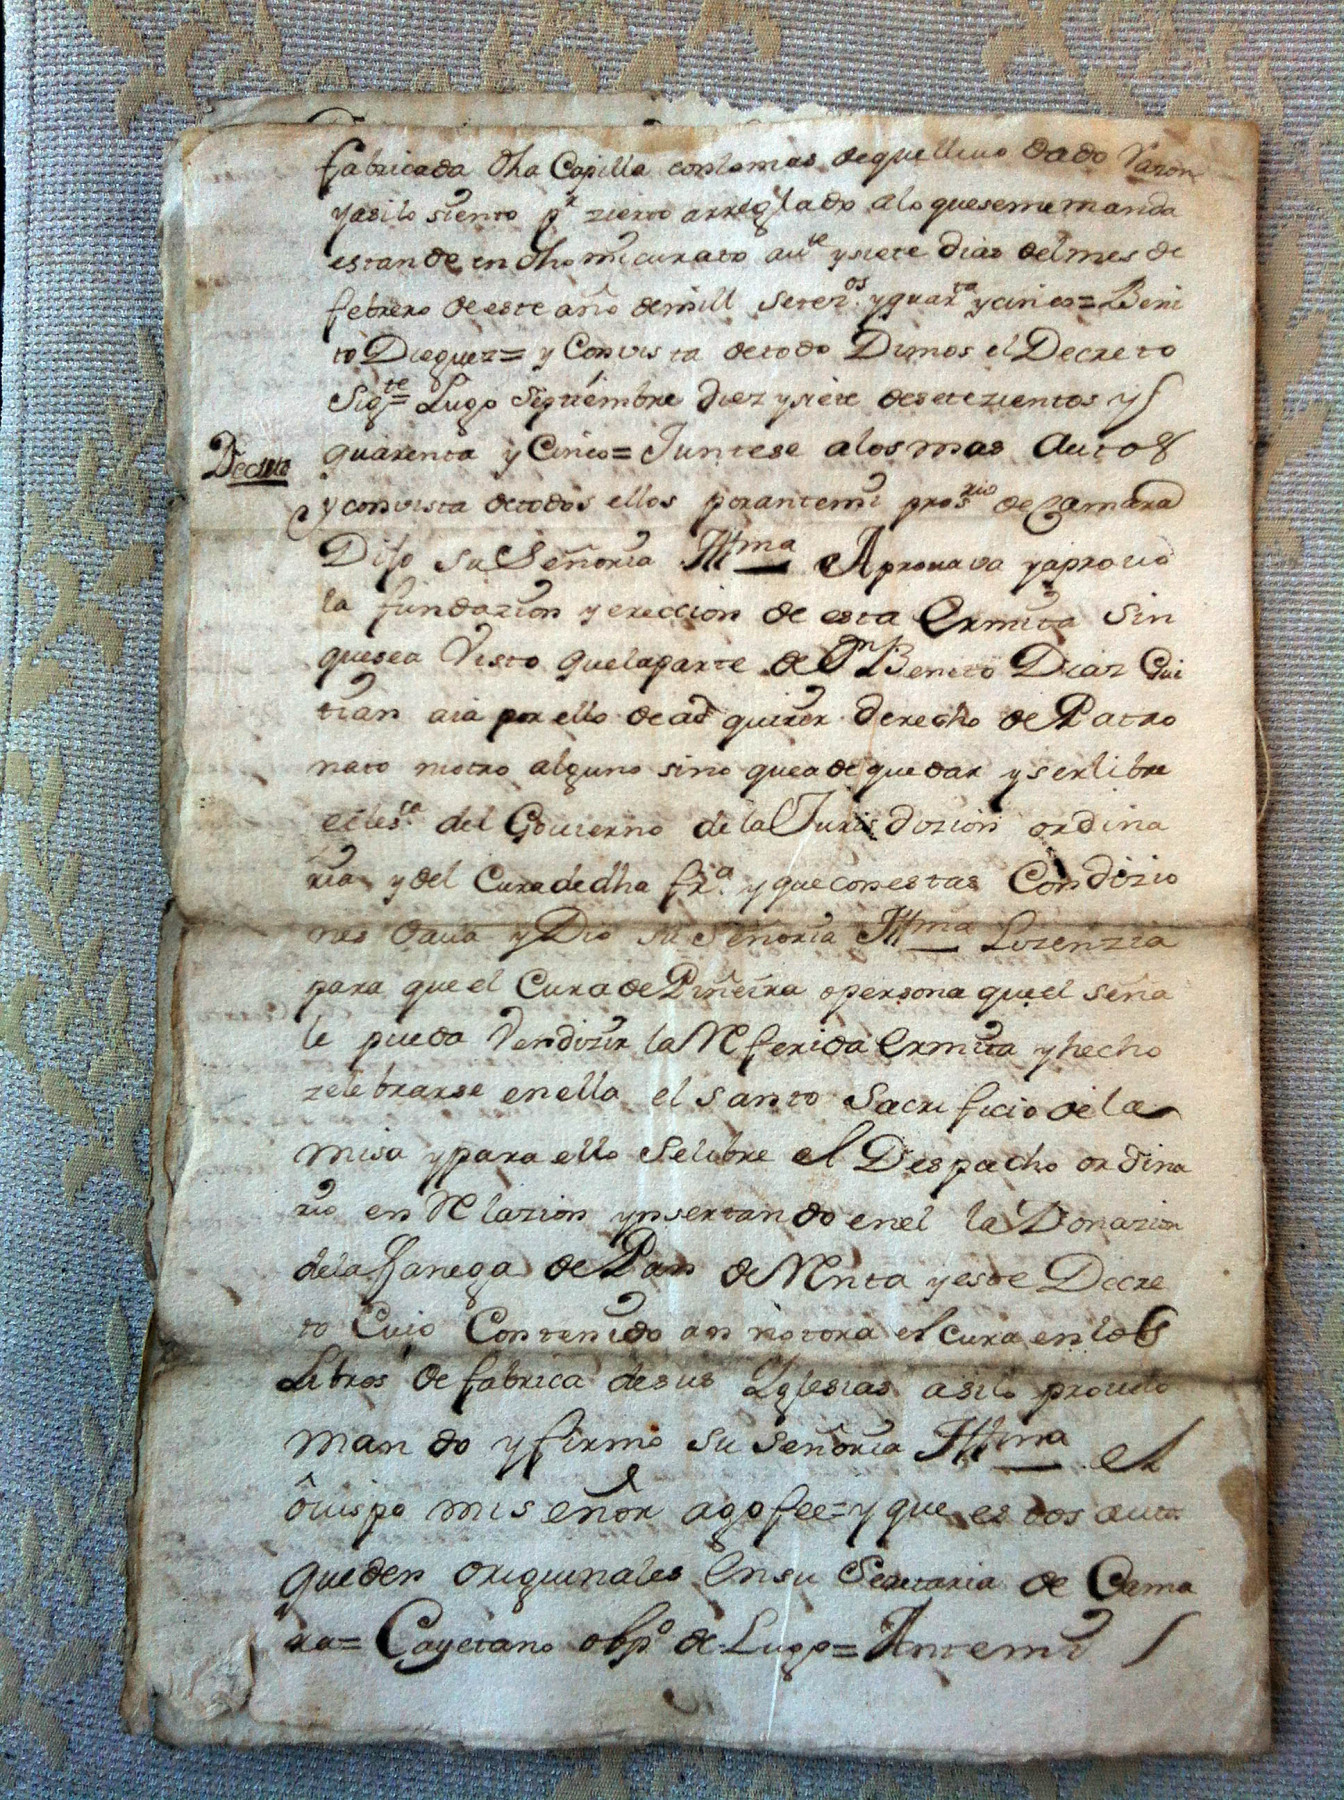 fabricada dha Capilla conlomas dequellevo dado Razon
yasilo siento pr zierto arreglado alo quesememanda
estande en dho micurato a veynte ysiete dias delmes de
febrero de este año demill setezos yquarta ycinco= Beni
to Dieguez= y Convista detodo Dimos el Decreto
Sigte= Lugo Septiembre diez ysiete desetezientos y
Decreto
quarenta y Cinco= Juntese alosmas Autos
yconvista detodos ellos porantemi prosrio de Camara
Dijo su Señoria Illma Aprouava yaprouo
la fundazion y ereccion de esta Ermita sin
quesea Visto quelaparte de Dn Benito Diaz Gui
tian aia por ello deadquirir derecho de Patro
nato niotro alguno sino quea de quedar yserlibre
eclesca del Gouierno dela Jurisdizion ordina
ria y del Curadedha frª y queconestas Condizio
nes daua y Dio su Señoria Illma Lizenzia
para que el Cura de Piñeira opersona queel seña
le pueda Vendizir la Referida Ermita yhecho
zelebrarse enella el santo Sacrificio dela
misa ypara ello selibre el Despacho ordina
rio en Relazion ynsertando enel la Donazion
dela fanega de Pan de Renta yeste Decre
to Cuio Contenido annotora el cura enlos
Libros de fabrica desus Yglesias asilo proveio
mando yfirmo su señoria Illma el
ôuispo miseñor agofee= y que estos auts
queden originales Ensu Secretaria de Cama
ra= Cayetano obpo de Lugo= Antemi